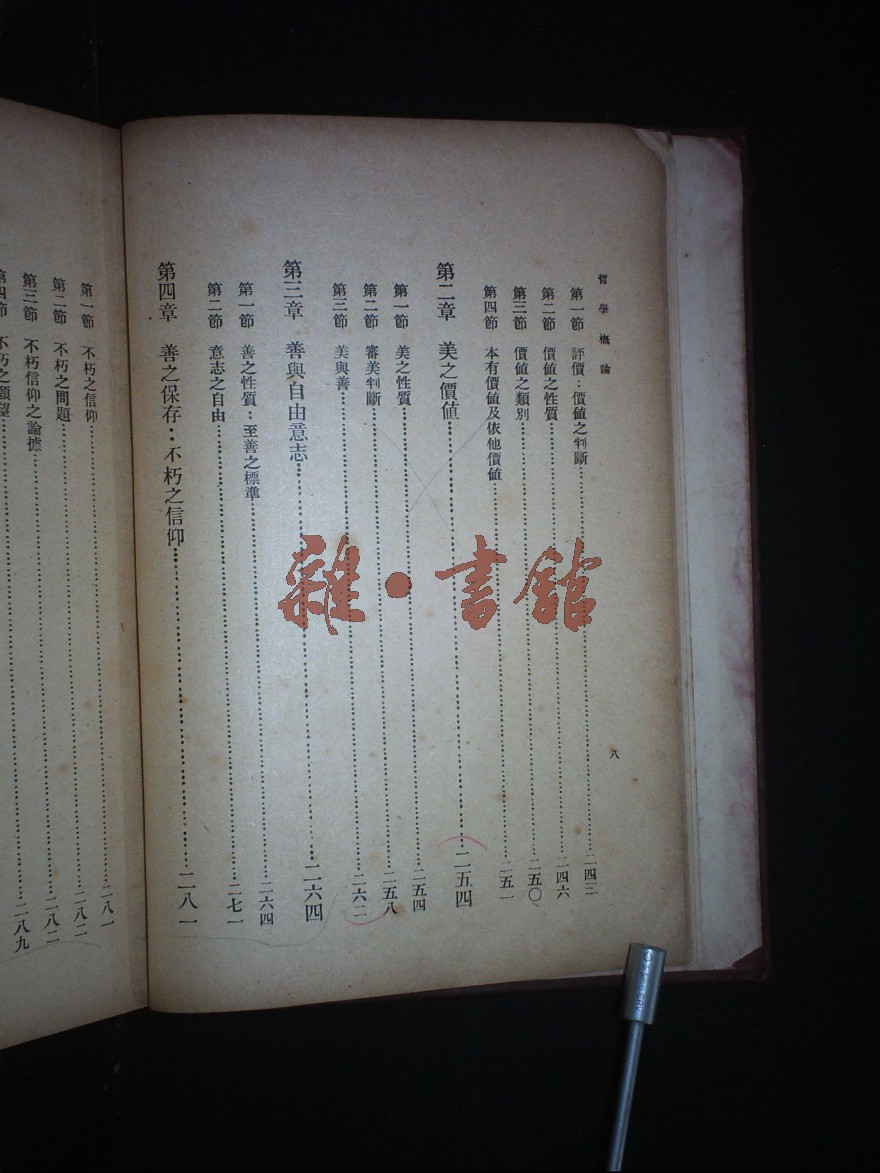 哲學概論
八
第一節 評價：價值之判斷……二四三
第二節 價值之性質……二四六
第三節 價值之類別……二五〇
第四節 本有價值及依他價值……二五一
第二章 美之價值……二五四
第一節 美之性質……二五四
第二節 審美判斷……二五八
第三節 美與善……二六二
第三章 善與自由意志……二六四
第一節 善之性質：至善之標準……二六四
第二節 意志之自由……二七一
第四章 善之保存：不朽之信仰……二八一
第一節 不朽之信仰……二八一
第二節 不朽之問題……二八二
第三節 不朽信仰之論據……二八二
第四節 不朽之願望……二八九
雜·書館